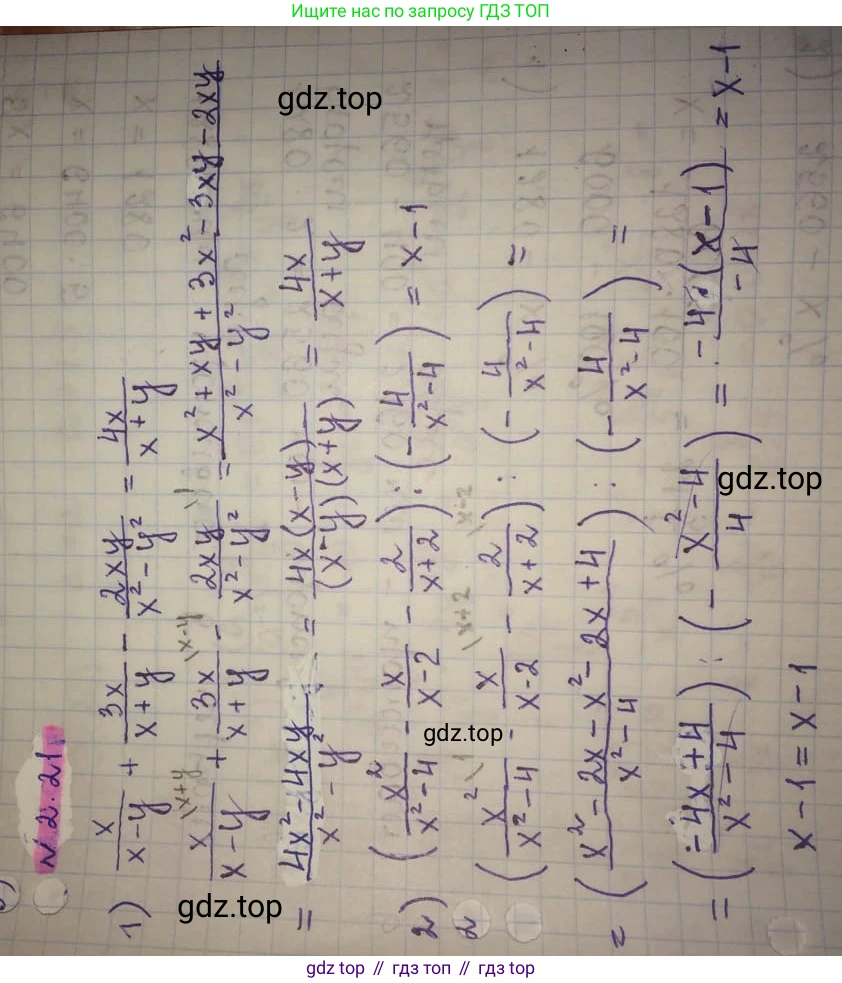 Ищите нас по запросу ГДЗ ТОП
N 2.21
1) x/(x-y) + 3x/(x+y) - 2xy/(x²-y²) = 4x/(x+y)
x/(x-y) \x+y + 3x/(x+y) \x-y - 2xy/(x²-y²) \1 = (x² + xy + 3x² - 3xy - 2xy)/(x²-y²)
= (4x² - 4xy)/(x²-y²) = 4x(x-y)/((x-y)(x+y)) = 4x/(x+y)
2) (x²/(x²-4) - x/(x-2) - 2/(x+2)) : (-4/(x²-4)) = x-1
2 (x²/(x²-4) \1 - x/(x-2) \x+2 - 2/(x+2) \x-2) : (-4/(x²-4)) =
= ((x² - 2x - x² - 2x + 4)/(x²-4)) : (-4/(x²-4)) =
= ((-4x+4)/(x²-4)) : (-(x²-4)/4) = -4·(x-1)/-4 = x-1
x-1 = x-1
gdz.top
gdz.top
gdz.top
gdz.top
gdz top // гдз топ // gdz top